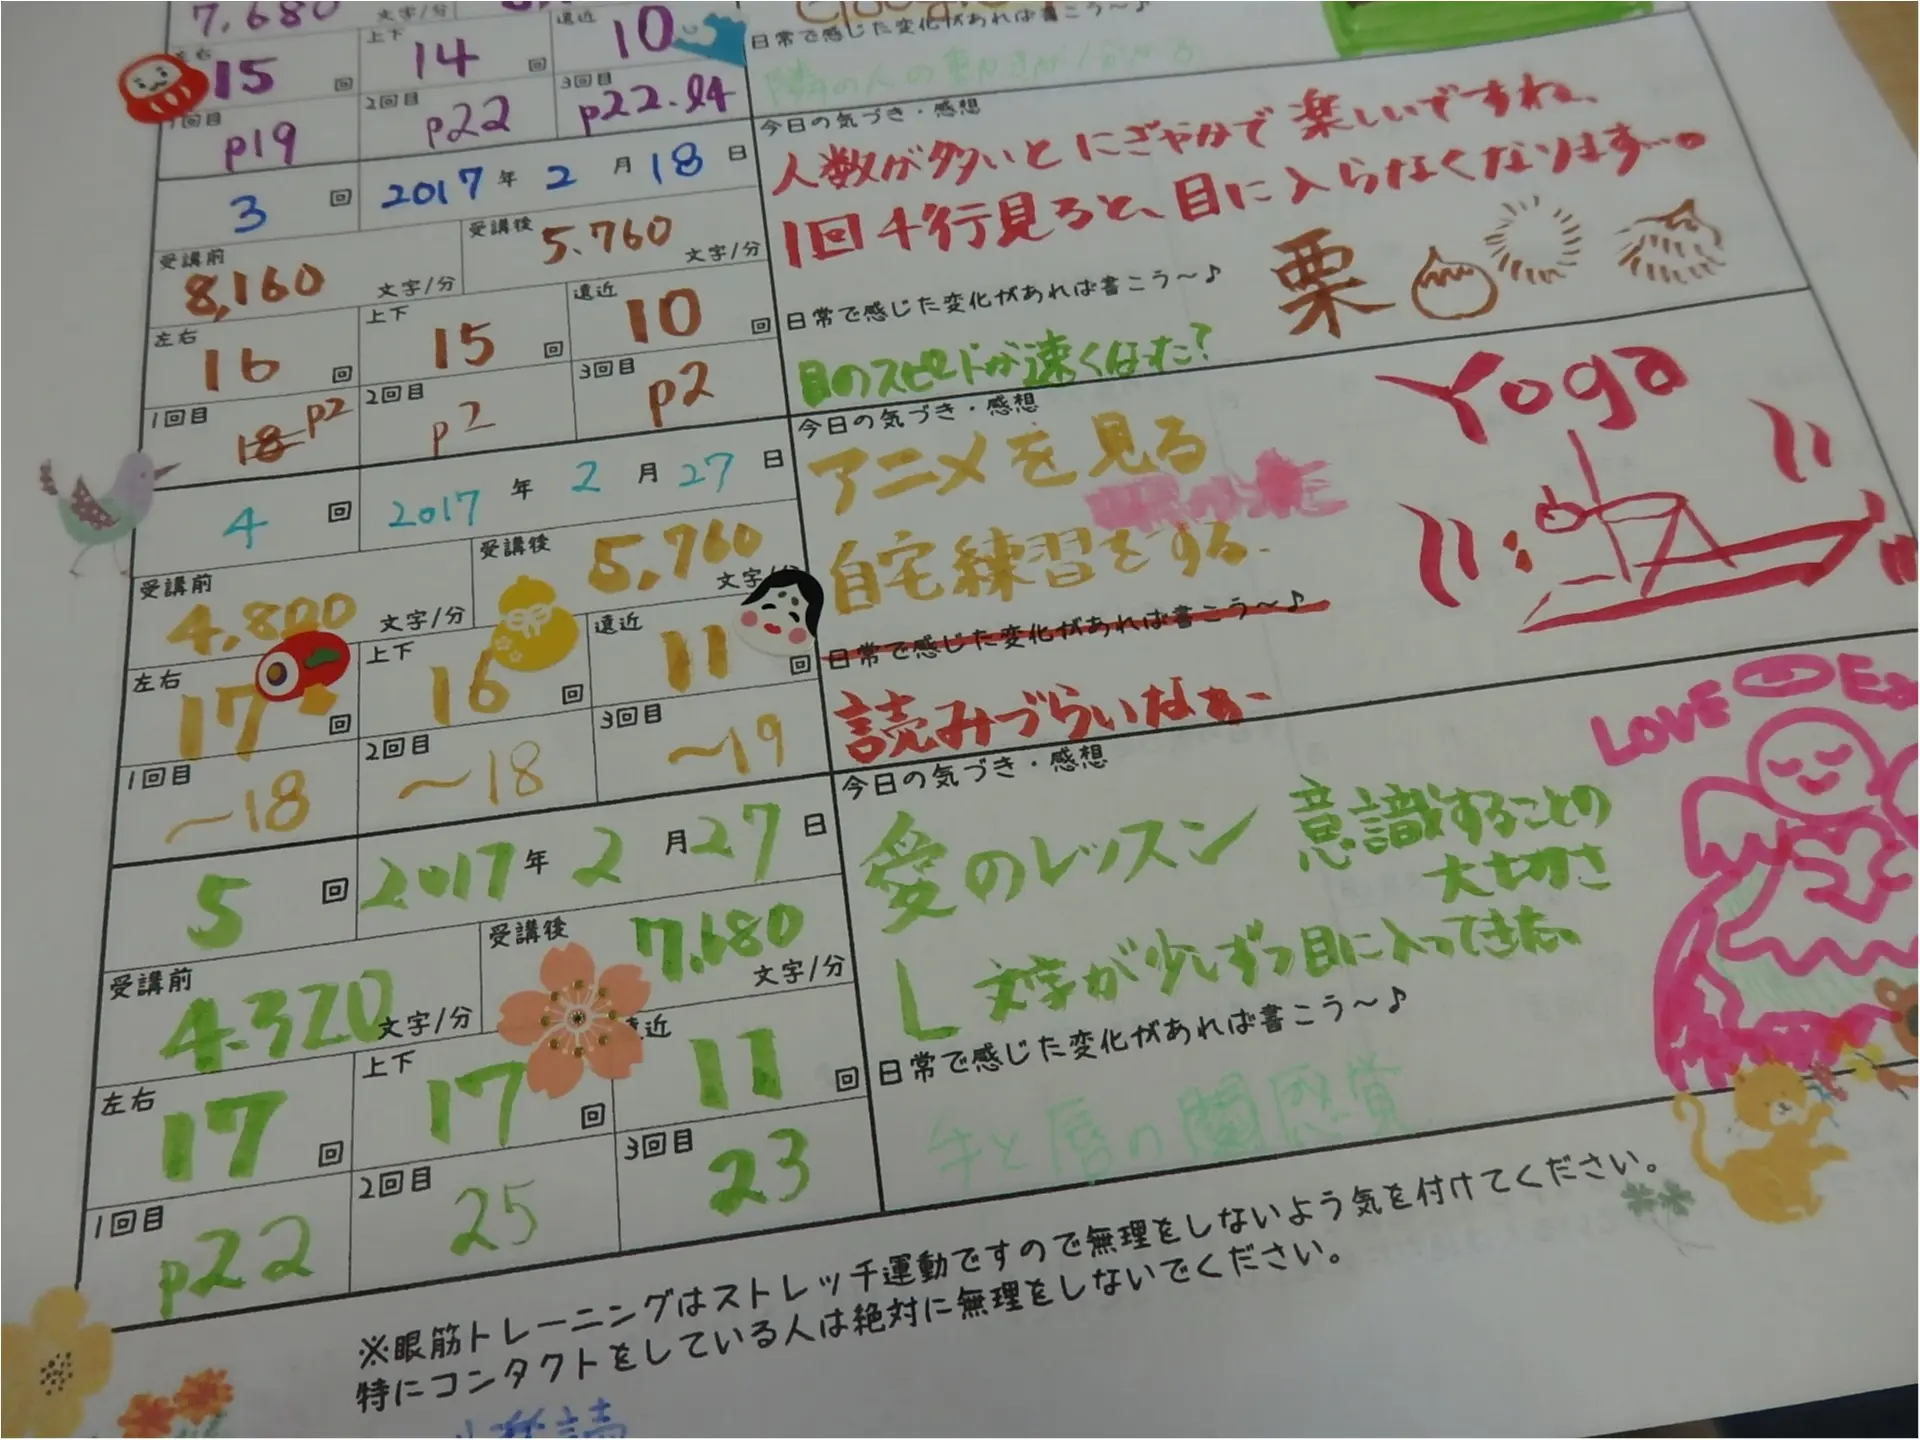 7,680 文字/分
左右 15 回 上下 14 回 遠近 10
日常で感じた変化があれば書こう～♪
隣の人の動きが分かる
1回目 p19 2回目 p22 3回目 p22.24
今日の気づき・感想
人数が多いと にぎやかで 楽しいですね、
1回4行見ると、目に入らなくなります…。
3 回 2017 年 2 月 18 日
受講前 8,160 文字/分 受講後 5.760 文字/分
左右 16 回 上下 15 回 遠近 10 回
1回目 18 p2 2回目 p2 3回目 p2
栗
日常で感じた変化があれば書こう～♪
目のスピードが速くなった?
4 回 2017 年 2 月 27 日
受講前 4,800 文字/分 受講後 5,760 文字/分
左右 17 回 上下 16 回 遠近 11 回
1回目 ～18 2回目 ～18 3回目 ～19
今日の気づき・感想
アニメを見る
自宅練習をする.
Yoga
日常で感じた変化があれば書こう～♪
読みづらいなぁー
5 回 2017 年 2 月 27 日
受講前 4.320 文字/分 受講後 7,680 文字/分
左右 17 回 上下 17 回 遠近 11 回
1回目 p22 2回目 25 3回目 23
今日の気づき・感想
愛のレッスン 意識することの
大切さ
文字が少しずつ目に入ってきた。
LOVE
日常で感じた変化があれば書こう～♪
手と唇の
感覚
※眼筋トレーニングはストレッチ運動ですので無理をしないよう気を付けてください。
特にコンタクトをしている人は絶対に無理をしないでください。